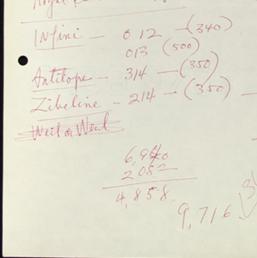 Infini – 012 – (340)
013 (500)
Antilope – 314 – (350)
Zibeline – 214 – (350) –
West or West
6,960
2052
4,858
9,716